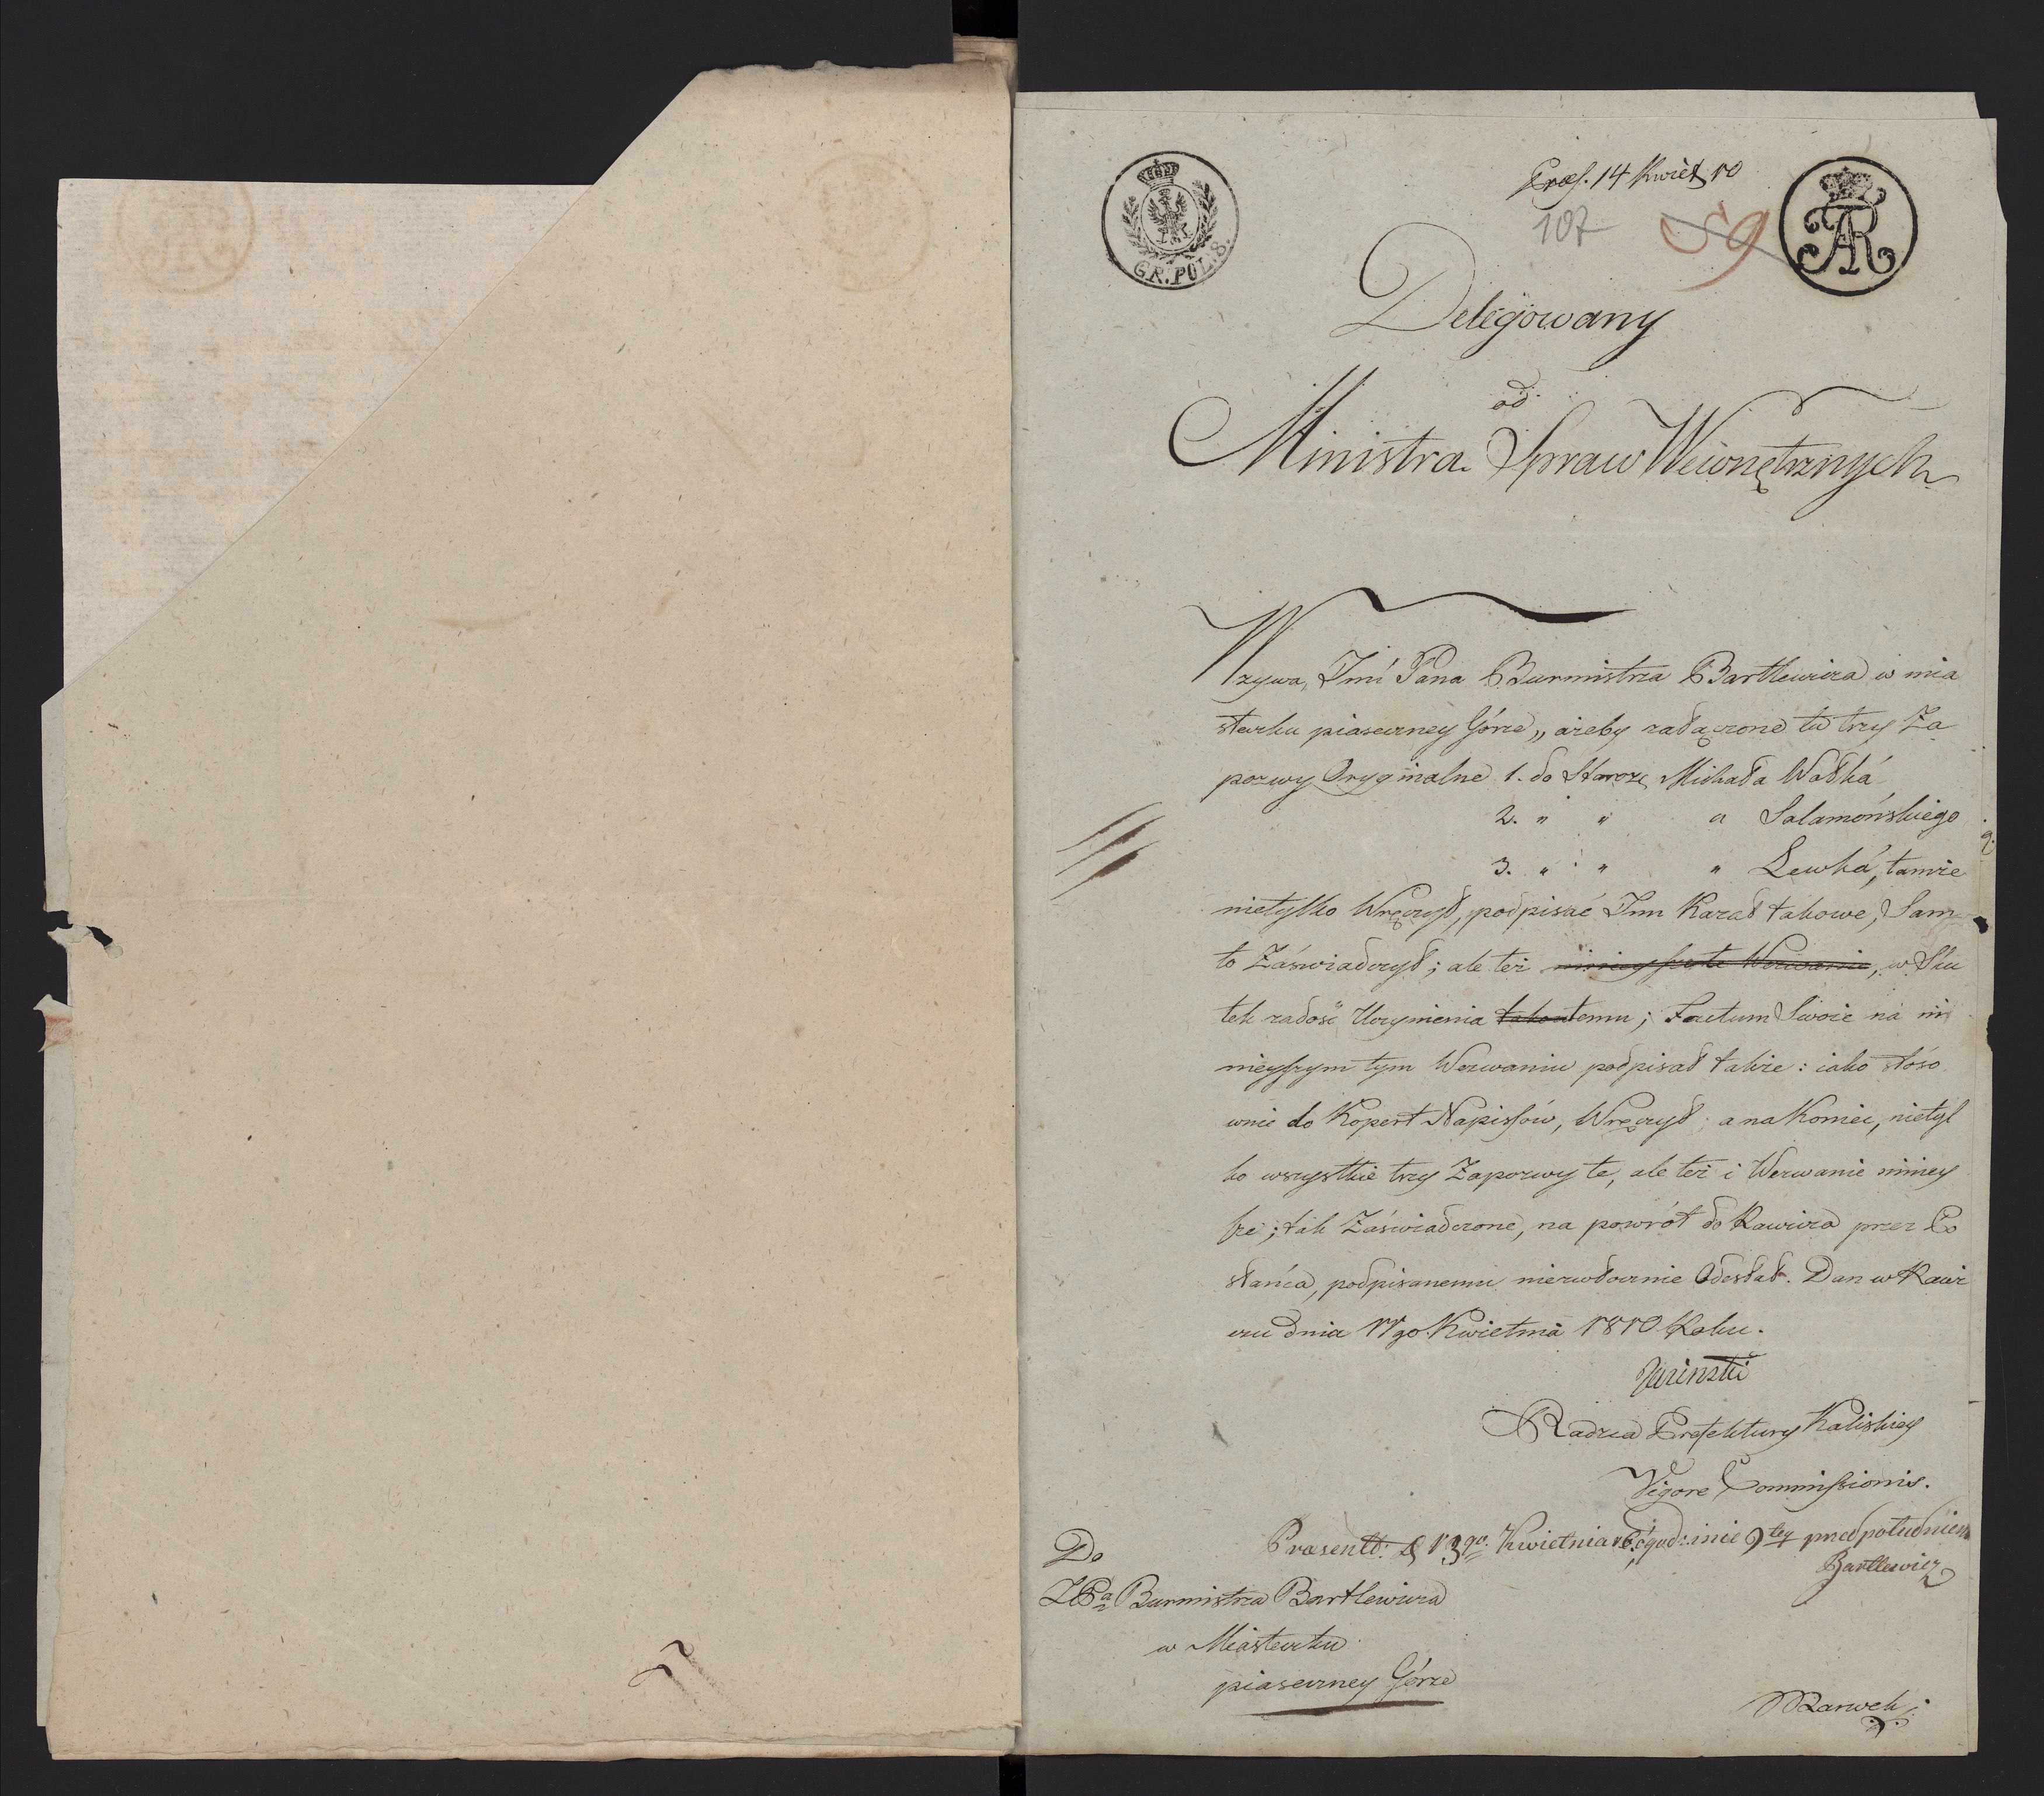 Præs. 14 Kwiet 10
G.R. POL. 8.
107
59
AR
Delegowany
od
Ministra Spraw Wewnętrznych
Wzywa, Jmć Pana Burmistrza Bartlewicza w mia
steczku piaseczney Górze, ażeby załączone tu trzy Za
pozwy Oryginalne 1. do Staroz. Michała Wołká
2. " " " Salamońskiego
3. " " " Lewká, tamże
nietylko Wręczył, podpisać Jm Kazał takowe, Sam
to Záswiadczył; ale też ninieysze te Wezwanie, w Sku
tek zadość Uczynienia temu; Factum Swoie na ni
nieyszym tym Wezwaniu podpisał także: iako stóso
wnie do Kopert Napissów, Wręczył a na Koniec, nietyl
ko wszystkie trzy Zapozwy te, ale też i Wezwanie niniey
sze; tak Záświadczone, na powrót do Rawicza przez Po
słańca, podpisanemu niezwłocznie Odesłał. Dan w Rawi
czu dnia 11go Kwietnia 1810 Roku.
Radzca Prefektury Kaliskiey
Vigore Commissionis.
Præsentt: d 13go Kwietnia godzinie 9tey przed południem
Bartlewicz
Do
JPa Burmistrza Bartlewicza
w Miasteczku
piaseczney Górze